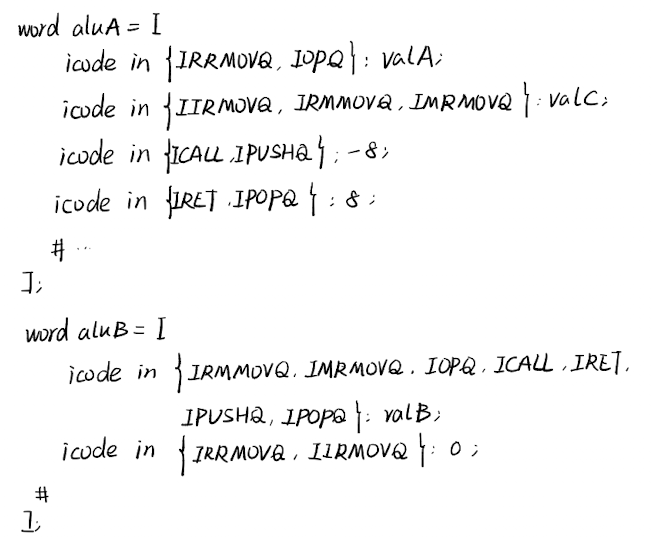 word aluA = [
icode in {IRRMOVQ, IOPQ}: valA;
icode in {IIRMOVQ, IRMMOVQ, IMRMOVQ}: valC;
icode in {ICALL, IPUSHQ}: -8;
icode in {IRET, IPOPQ}: 8;
# ...
];
word aluB = [
icode in {IRMMOVQ, IMRMOVQ, IOPQ, ICALL, IRET,
IPUSHQ, IPOPQ}: valB;
icode in {IRRMOVQ, IIRMOVQ}: 0;
#
];